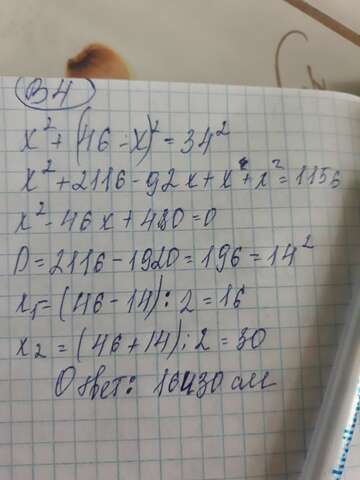 В4
x² + (46 - x)² = 34²
x² + 2116 - 92x + x² + x² = 1156
x² - 46x + 480 = 0
D = 2116 - 1920 = 196 = 14²
x₁ = (46 - 14) : 2 = 16
x₂ = (46 + 14) : 2 = 30
Ответ: 16 и 30 см